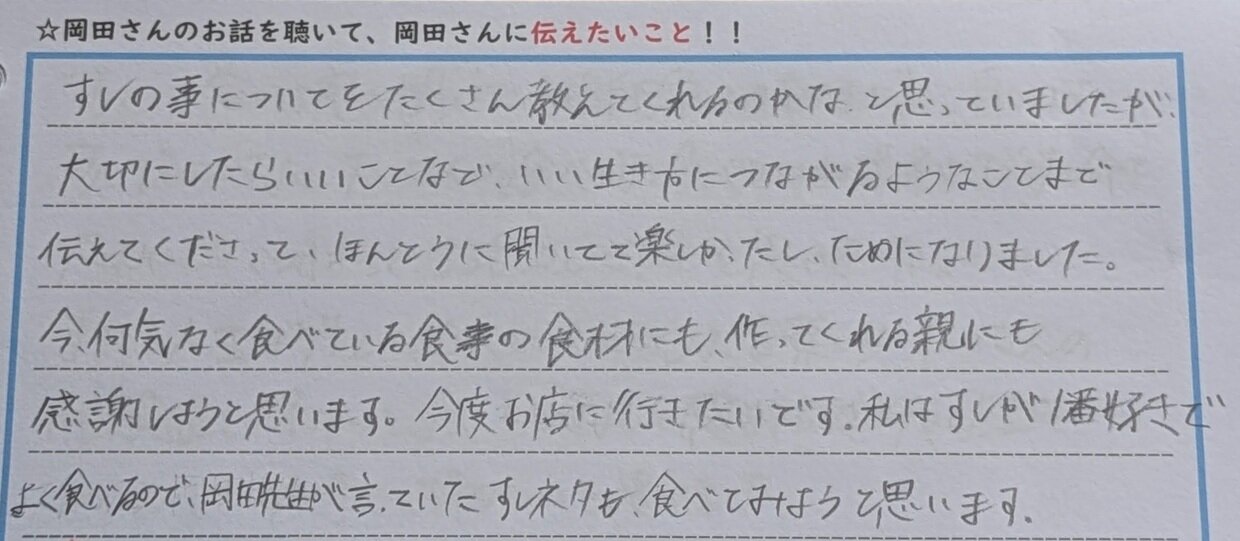 ☆岡田さんのお話を聴いて、岡田さんに伝えたいこと！！
すしの事についてをたくさん教えてくれるのかな、と思っていましたが、
大切にしたらいいことなど、いい生き方につながるようなことまで
伝えてくださって、ほんとうに聞いてて楽しかったし、ためになりました。
今、何気なく食べている食事の食材にも、作ってくれる親にも
感謝しようと思います。今度お店に行きたいです。私はすしが1番好きで
よく食べるので、岡田先生が言っていたすしネタも、食べてみようと思います。